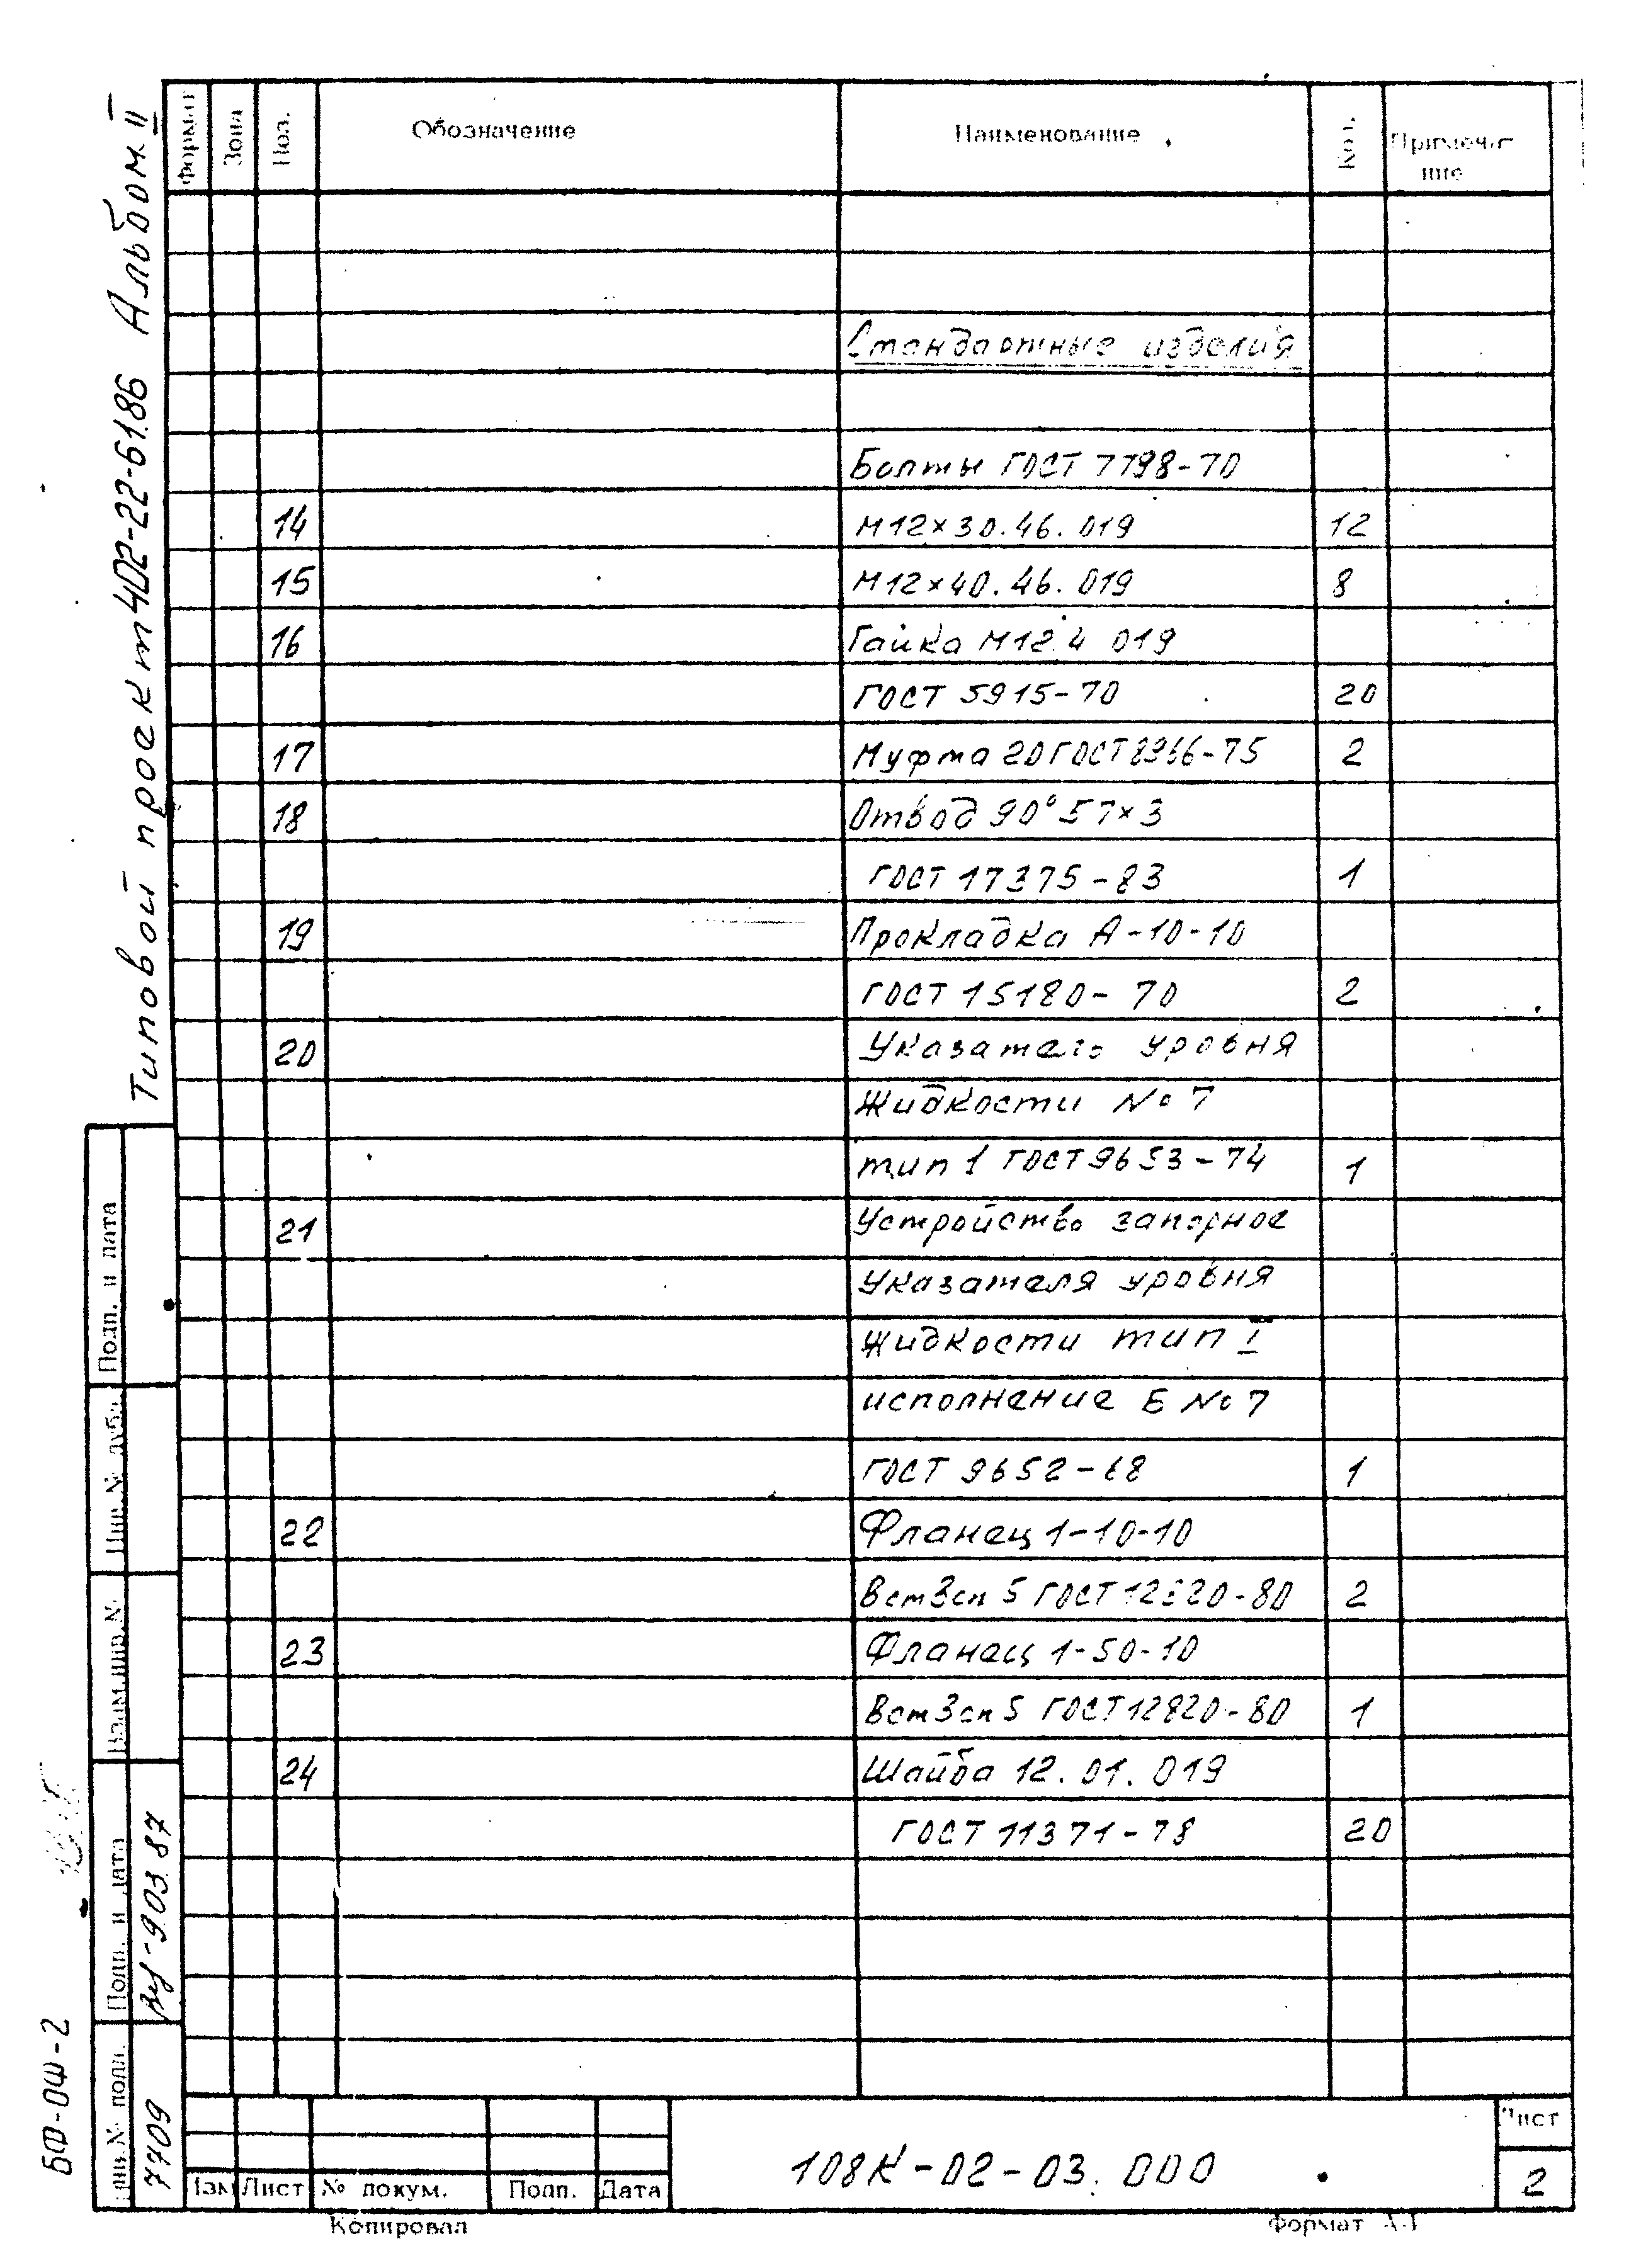 Типовой проект 402-22-61.86 Альбом II
Формат
Зона
Поз.
Обозначение
Наименование
Кол.
Примеча-
ние
Стандартные изделия
Болты ГОСТ 7798-70
14 М12×30.46.019 12
15 М12×40.46.019 8
16 Гайка М12.4 019
ГОСТ 5915-70 20
17 Муфта 20 ГОСТ 8966-75 2
18 Отвод 90° 57×3
ГОСТ 17375-83 1
19 Прокладка А-10-10
ГОСТ 15180-70 2
20 Указатель уровня
жидкости № 7
тип 1 ГОСТ 9653-74 1
21 Устройство запорное
указателя уровня
жидкости тип I
исполнение Б № 7
ГОСТ 9652-68 1
22 Фланец 1-10-10
Вст3сп 5 ГОСТ 12820-80 2
23 Фланец 1-50-10
Вст3сп 5 ГОСТ 12820-80 1
24 Шайба 12.01.019
ГОСТ 11371-78 20
Подп. и дата
Инв. № дубл.
Взам. инв. №
Подп. и дата
9.03.87
Инв. № подл.
7709
БФ-ОФ-2
Изм Лист № докум. Подп. Дата
108К-02-03.000
Лист
2
Копировал
Формат А4